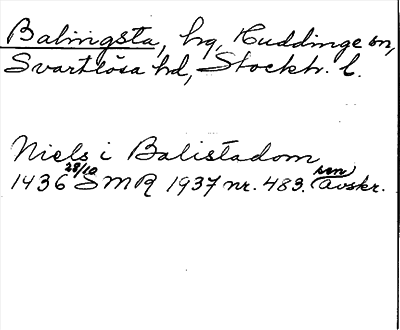 Balingsta, hg, Huddinge sn,
Svartlösa hd, Stockh. l.
Niels i Balistadom
1436 28/10 SMR 1937 nr. 483. sen avskr.